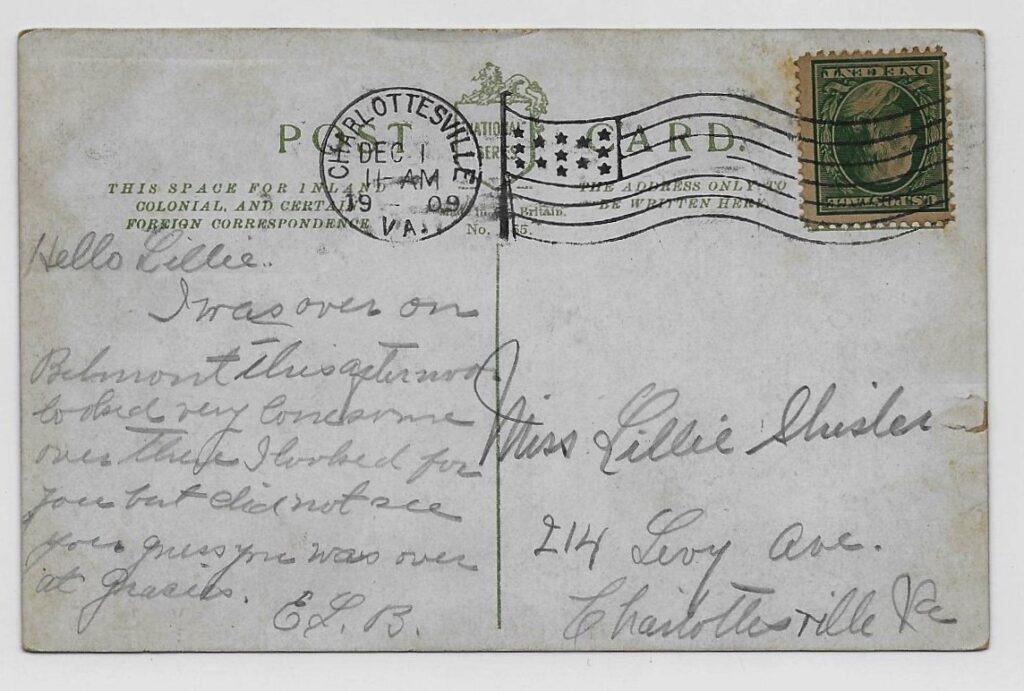 POST CARD.
NATIONAL
SERIES
THIS SPACE FOR INLAND
COLONIAL, AND CERTAIN
FOREIGN CORRESPONDENCE
THE ADDRESS ONLY TO
BE WRITTEN HERE.
Britain.
No.
CHARLOTTESVILLE
DEC 1
11-AM
19 - 09
VA.
ONE CENT
U.S. POSTAGE
Hello Lillie.
I was over on
Belmont this afternoon
looked very lonesome
over there I looked for
you but did not see
you guess you was over
at Gracies.
E L. B.
Miss Lillie Shisler
214 Levy Ave.
Charlottesville Va